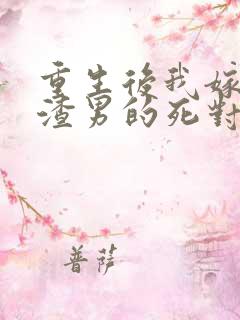 重生後我嫁
渣男的死對
菩薩